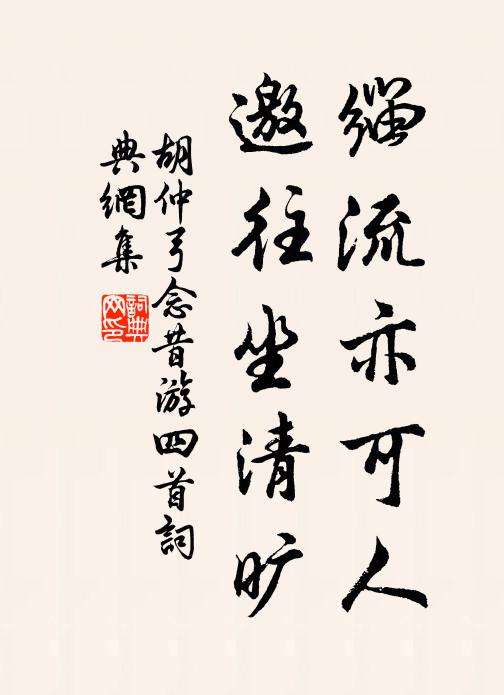 緇流亦可人
邀往坐清旷
胡仲弓念昔游四首詞
典網集
詞典网印